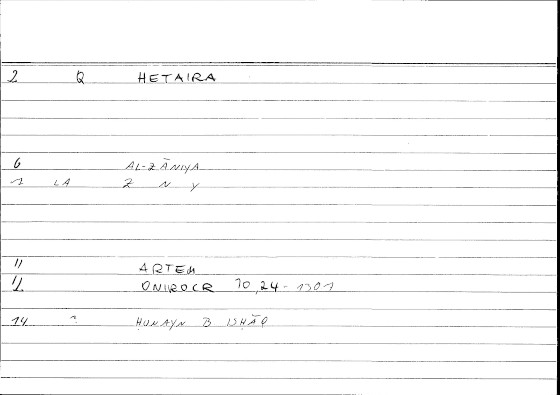 2 Q HETAIRA
6 AL-ZĀNIYA
7 LA Z N Y
11 ARTEM
12 ONIROCR 10,24-1301
14 HUNAYN B ISHĀQ